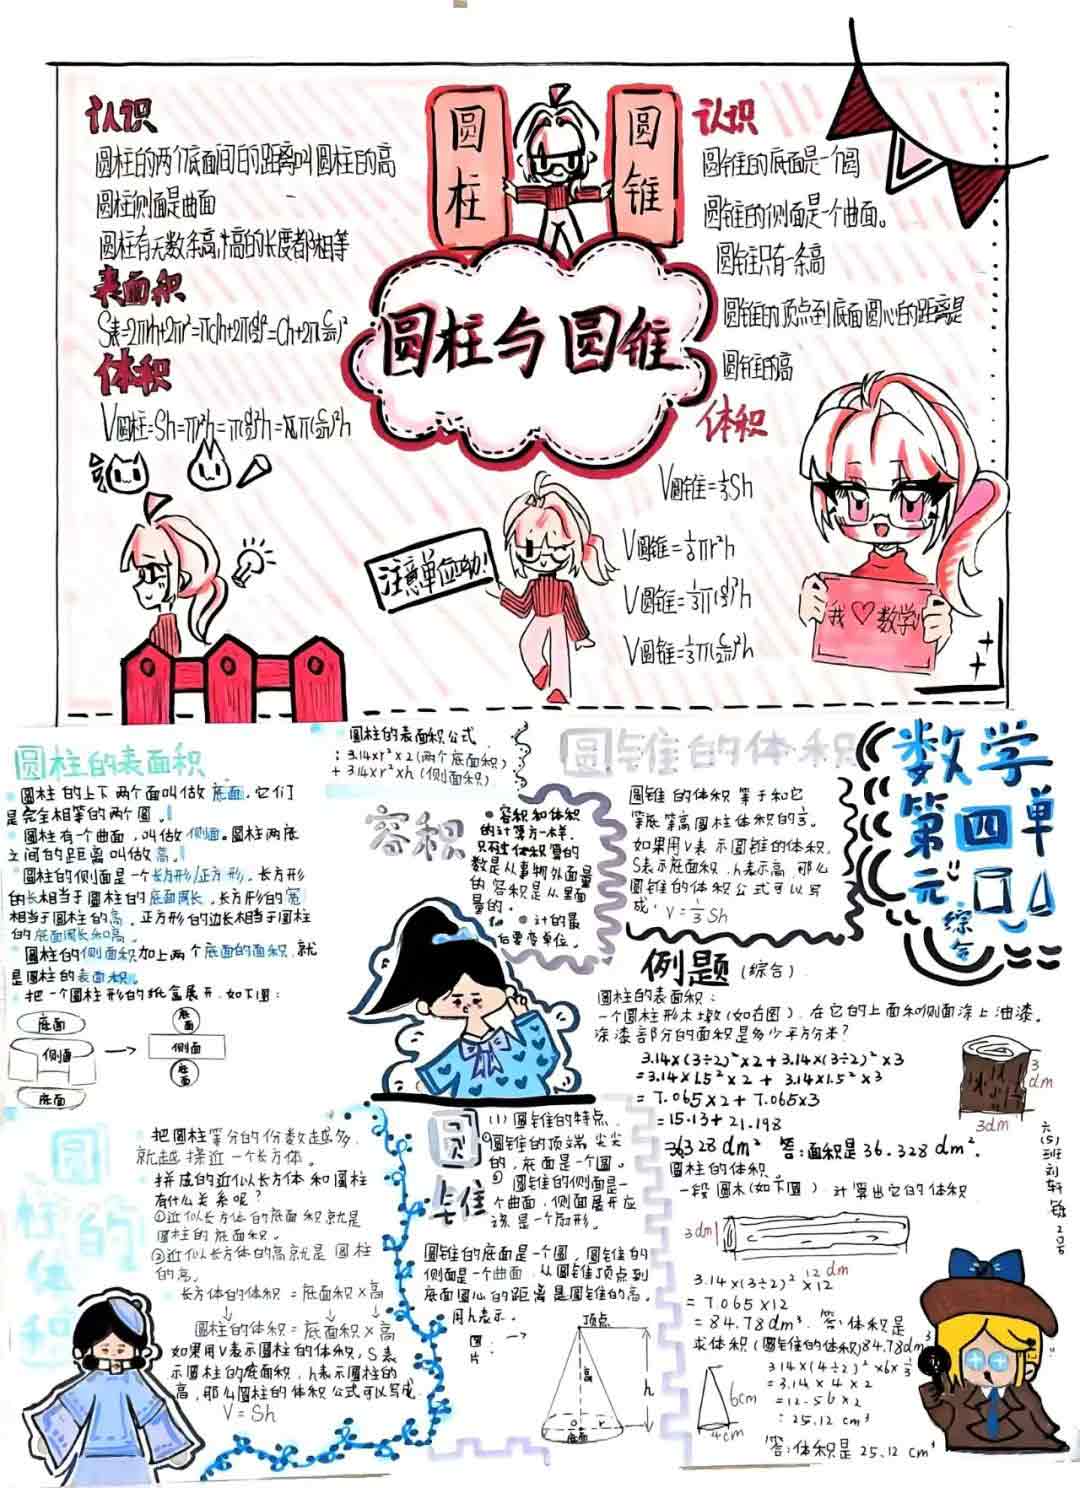 认识
圆柱的两个底面间的距离叫圆柱的高
圆柱侧面是曲面
圆柱有无数条高,高的长度都相等
表面积
体积
圆柱
圆锥
圆柱与圆锥
认识
圆锥的底面是一个圆
圆锥的侧面是一个曲面。
圆锥只有一条高
圆锥的顶点到底面圆心的距离是
圆锥的高
体积
V圆锥=⅓Sh
V圆锥=⅓πr²h
注意单位呦!
我♡数学
圆柱的表面积
圆柱的上下两个面叫做底面,它们
是完全相等的两个圆。
圆柱有一个曲面,叫做侧面。圆柱两底
之间的距离叫做高。
圆柱的侧面是一个长方形/正方形,长方形
的长相当于圆柱的底面周长,长方形的宽
相当于圆柱的高,正方形的边长相当于圆柱
的底面周长和高。
圆柱的侧面积加上两个底面的面积,就
是圆柱的表面积。
把一个圆柱形的纸盒展开,如下图:
底面
侧面
底面
底面
侧面
底面
圆柱的表面积公式
:3.14×r²×2(两个底面积)
+3.14×r²×h(侧面积)
容积
容积和体积
的计算方一样.
只不过体积算的
数是从事物外面量
的 容积是从里面
量的.
圆锥的体积
圆锥的体积等于和它
等底等高圆柱体积的⅓.
如果用V表示圆锥的体积,
S表示底面积,h表示高,那么
圆锥的体积公式可以写
成:V=⅓Sh
数学
第四单
元
综合
例题(综合).
圆柱的表面积:
一个圆柱形木墩(如右图),在它的上面和侧面涂上油漆,
涂漆部分的面积是多少平方分米?
3.14×(3÷2)²×2+3.14×(3÷2)²×3
=3.14×1.5²×2+3.14×1.5²×3
=7.065×2+7.065×3
=15.13+21.198
=36.328dm² 答:面积是36.328dm².
3dm
3dm
圆柱的体积
一段圆木(如下图),计算出它的体积
3dm
12dm
3.14×(3÷2)²×12
=7.065×12
=84.78dm³. 答:体积是
84.78dm³
求体积(圆锥的体积)
3.14×(4÷2)²×6×⅓
=3.14×4×2
=12.56×2
=25.12cm³
答:体积是25.12cm³
6cm
4cm
圆柱的体积
把圆柱等分的份数越多,
就越接近一个长方体。
拼成的近似长方体和圆柱
有什么关系呢?
①近似长方体的底面积就是
圆柱的底面积。
②近似长方体的高就是圆柱
的高。
长方体的体积=底面积×高
圆柱的体积=底面积×高
如果用V表示圆柱的体积,S表
示圆柱的底面积,h表示圆柱的
高,那么圆柱的体积公式可以写成
V=Sh
圆锥
(1)圆锥的特点
①圆锥的顶端尖尖
的,底面是一个圆。
②圆锥的侧面是一
个曲面,侧面展开应
该是一个扇形。
圆锥的底面是一个圆,圆锥的
侧面是一个曲面,从圆锥顶点到
底面圆心的距离是圆锥的高。
用h表示.
图片:
顶点
高
h
底面